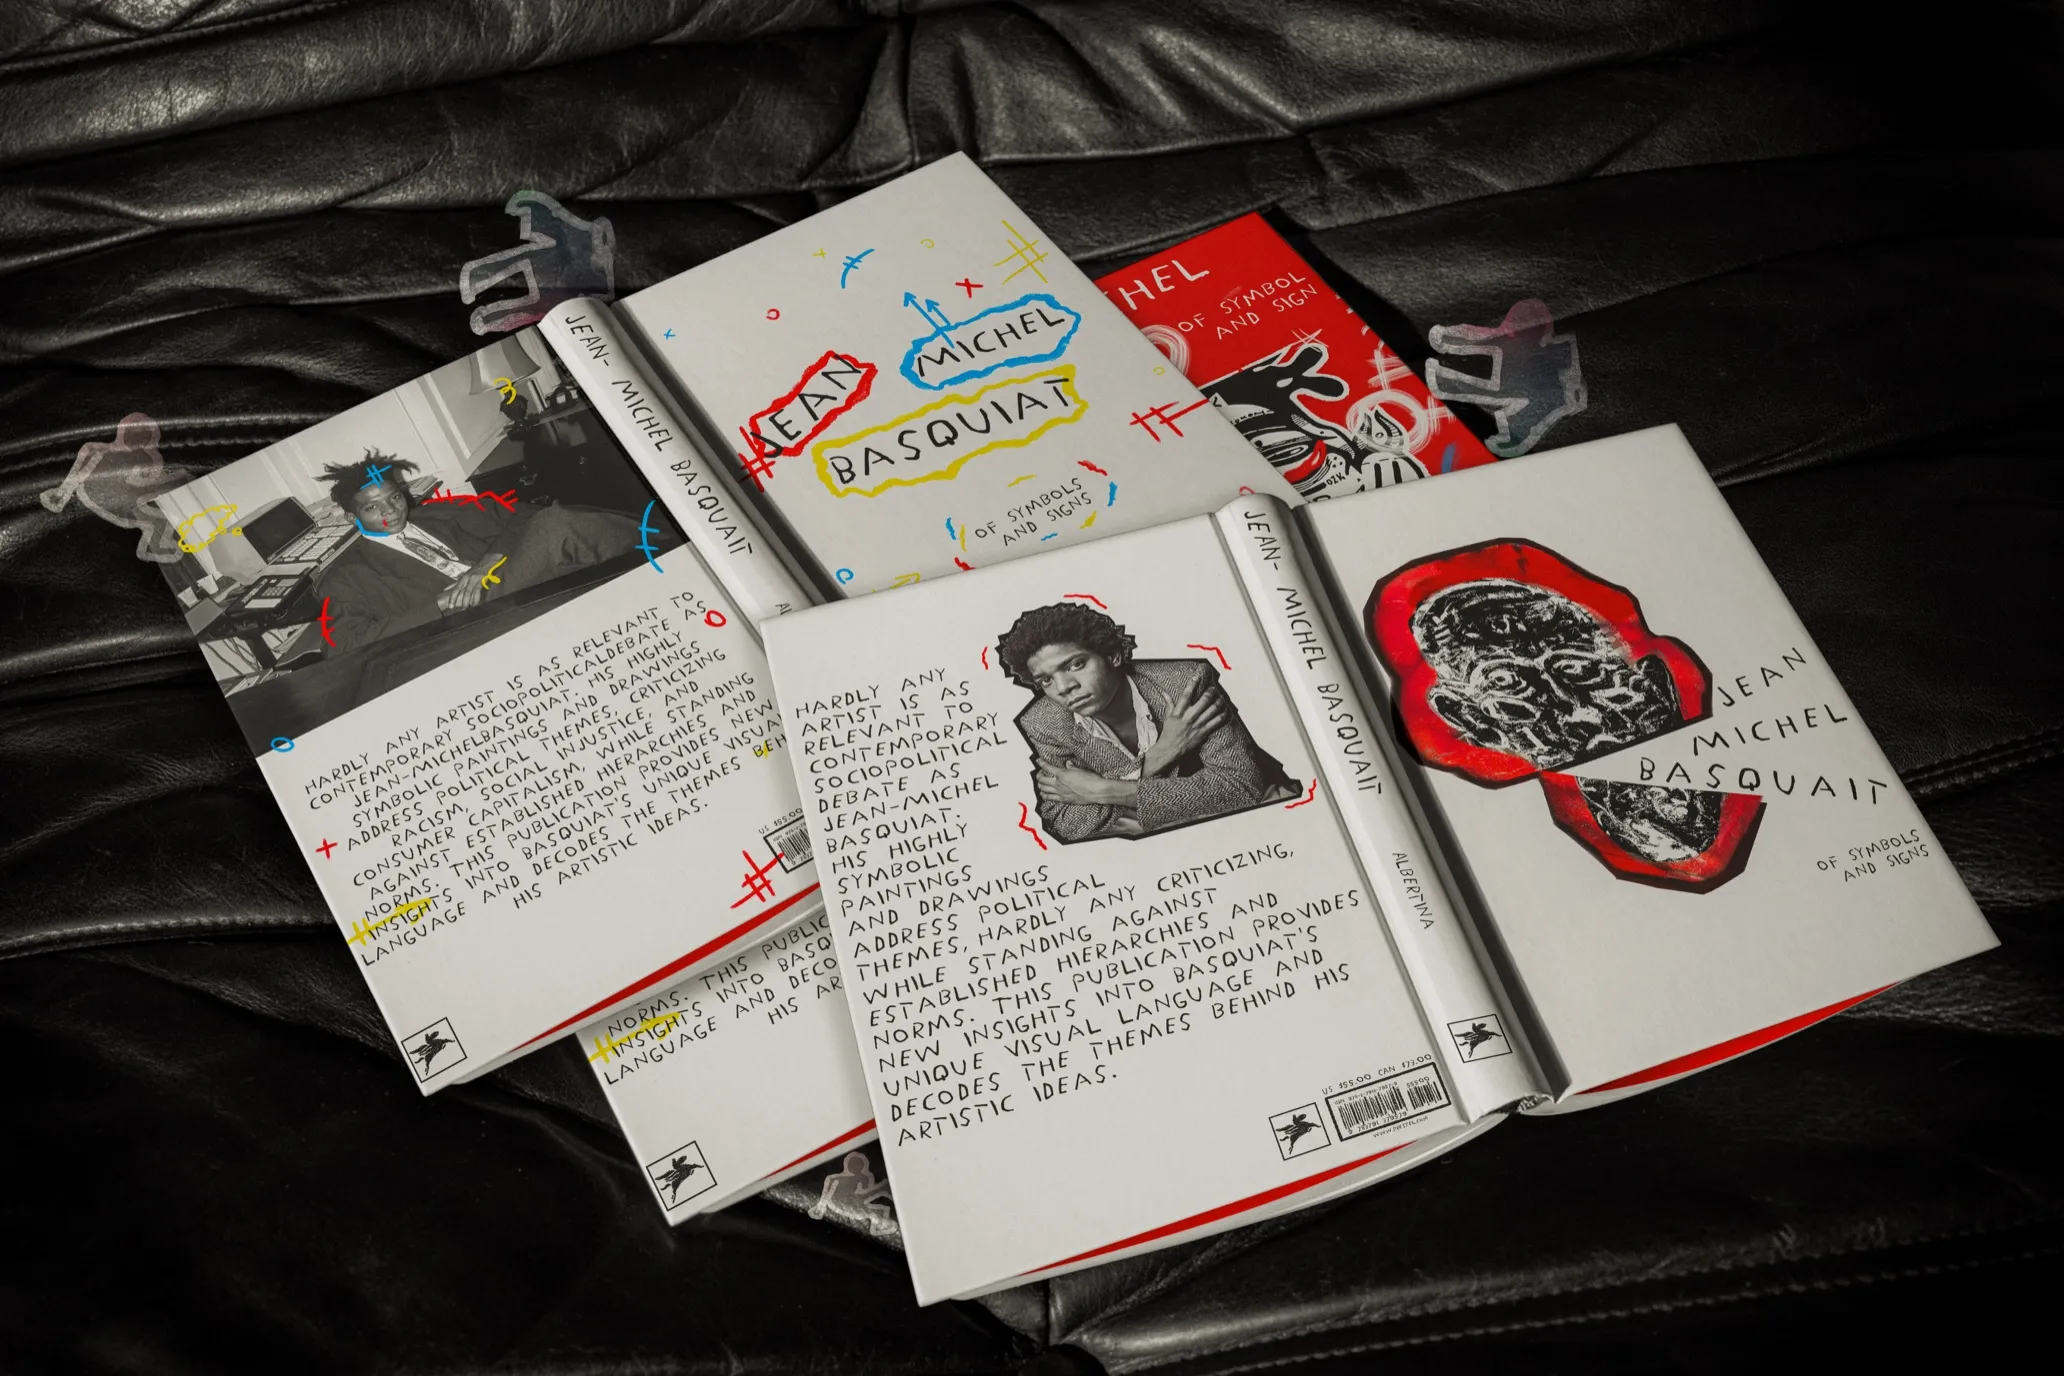 HARDLY ANY ARTIST IS AS RELEVANT TO
CONTEMPORARY SOCIOPOLITICALDEBATE AS
JEAN-MICHELBASQUIAT. HIS HIGHLY
SYMBOLIC PAINTINGS AND DRAWINGS
ADDRESS POLITICAL THEMES, CRITICIZING
RACISM, SOCIAL INJUSTICE, AND
CONSUMER CAPITALISM, WHILE STANDING
AGAINST ESTABLISHED HIERARCHIES AND
NORMS. THIS PUBLICATION PROVIDES NEW
INSIGHTS INTO BASQUIAT'S UNIQUE VISUA
LANGUAGE AND DECODES THE THEMES BEH
HIS ARTISTIC IDEAS.
US $55.00
JEAN- MICHEL BASQUAIT
AL
JEAN
MICHEL
BASQUIAT
OF SYMBOLS
AND SIGNS
HEL
OF SYMBOL
AND SIGN
NORMS. THIS PUBLIC
INSIGHTS INTO BASQ
LANGUAGE AND DECO
HIS AR
HARDLY ANY
ARTIST IS AS
RELEVANT TO
CONTEMPORARY
SOCIOPOLITICAL
DEBATE AS
JEAN-MICHEL
BASQUIAT.
HIS HIGHLY
SYMBOLIC
PAINTINGS
AND DRAWINGS
ADDRESS POLITICAL
THEMES, HARDLY ANY CRITICIZING,
WHILE STANDING AGAINST
ESTABLISHED HIERARCHIES AND
NORMS. THIS PUBLICATION PROVIDES
NEW INSIGHTS INTO BASQUIAT'S
UNIQUE VISUAL LANGUAGE AND
DECODES THE THEMES BEHIND HIS
ARTISTIC IDEAS.
US $55.00 CAN $73.00
WWW.PRESTEL.COM
JEAN- MICHEL BASQUAIT
ALBERTINA
JEAN
MICHEL
BASQUAIT
OF SYMBOLS
AND SIGNS